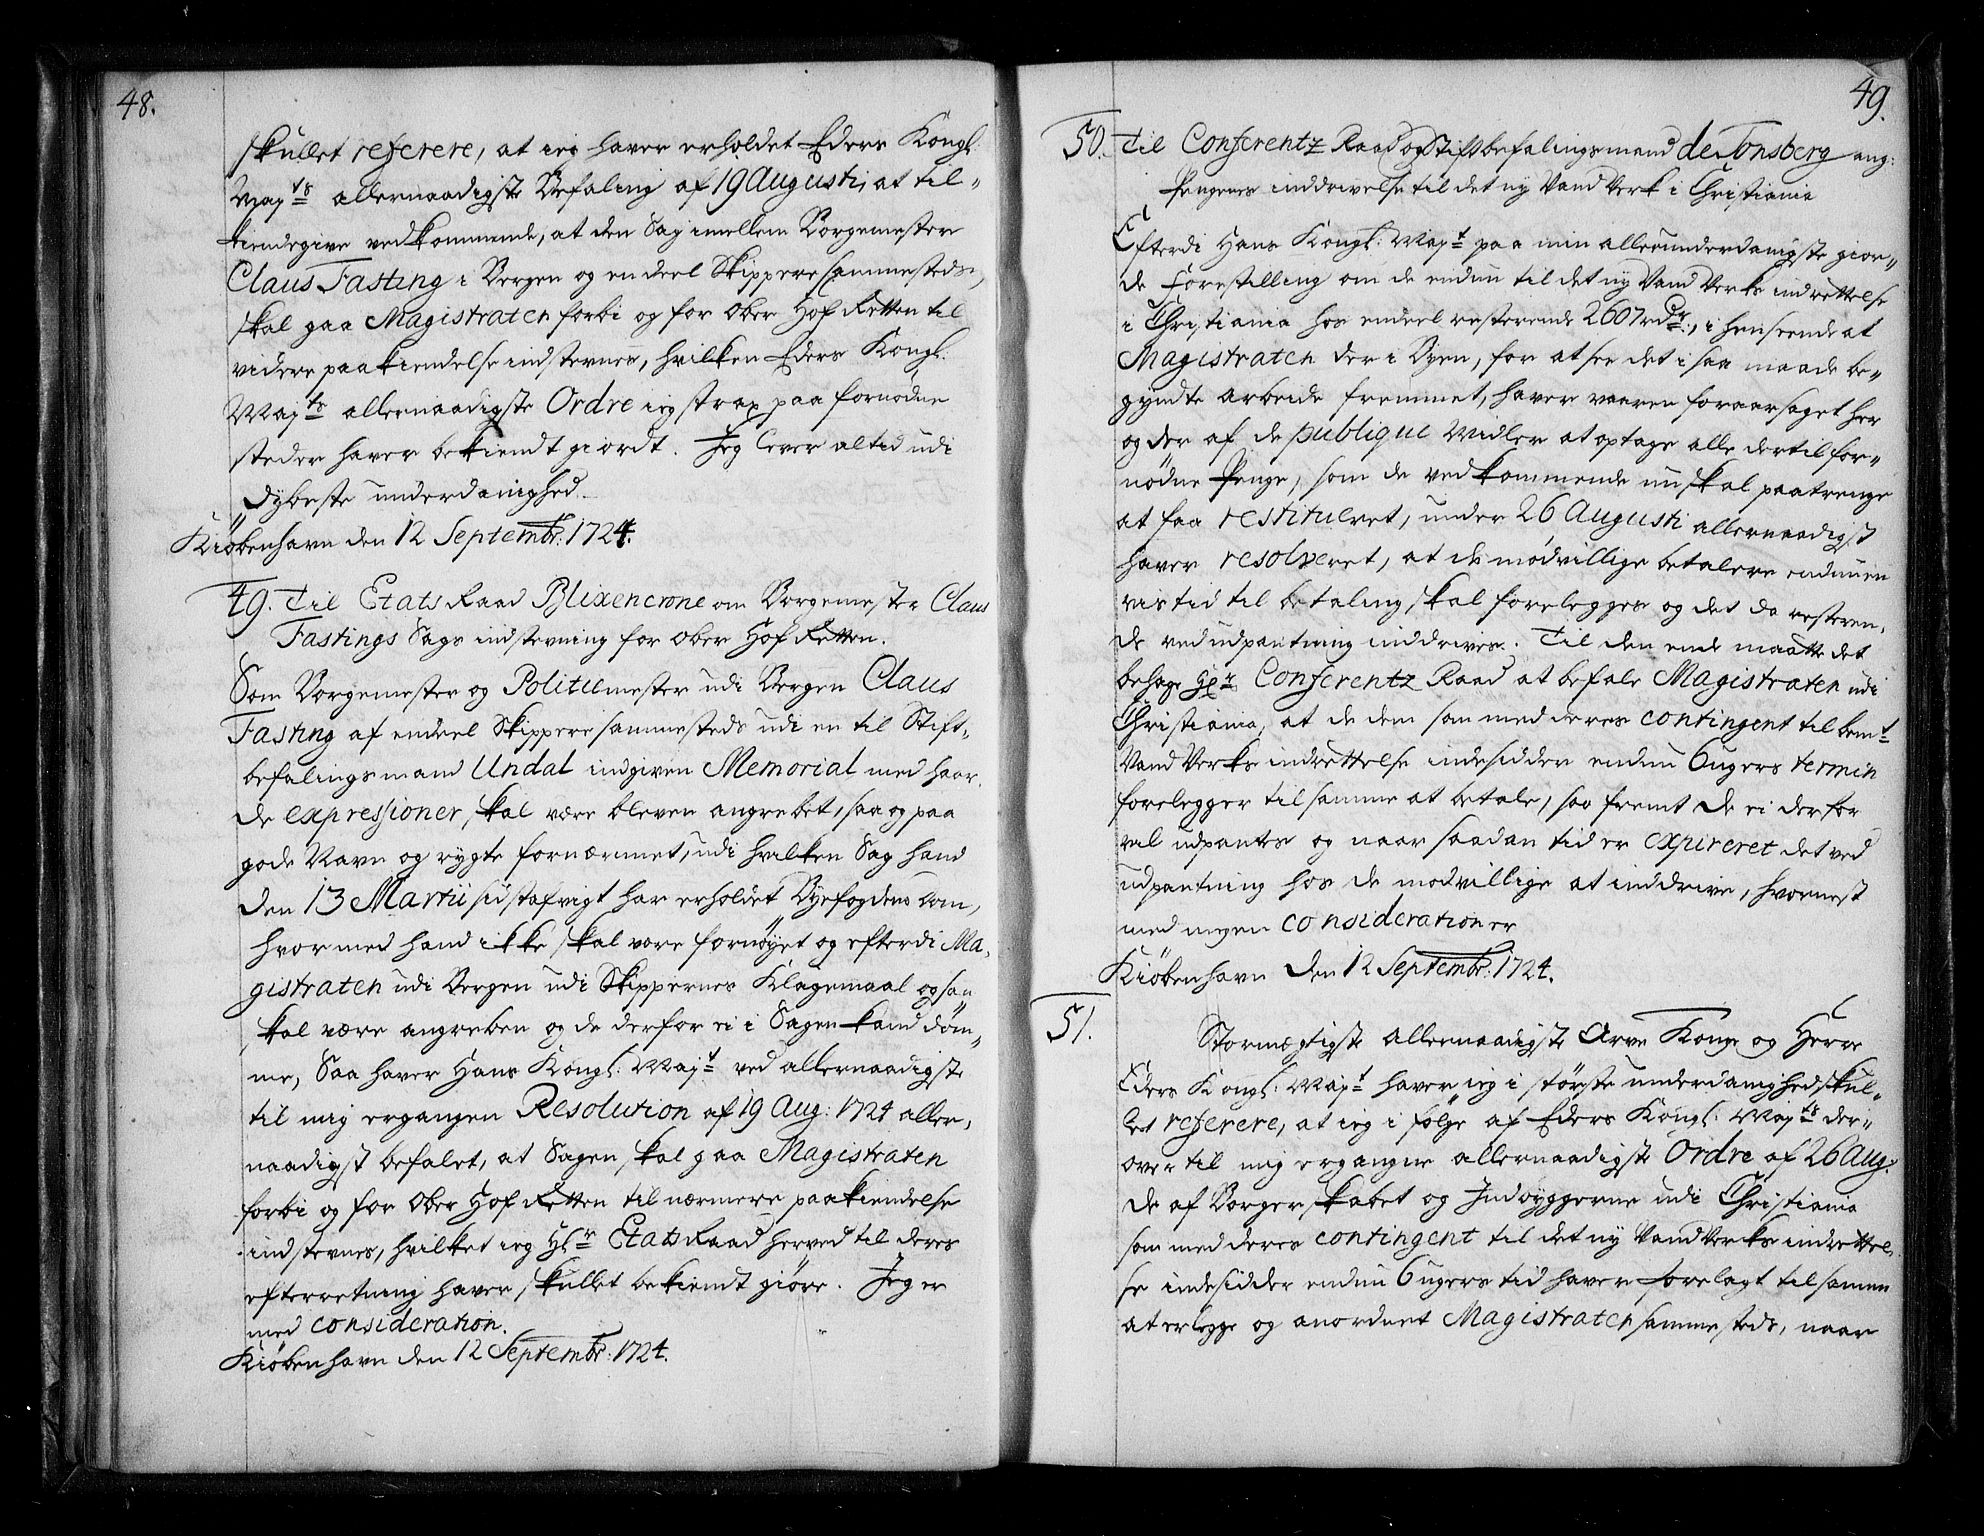 48.
skullet referere, at ieg haver erholdet Eders Kongl:
Mayts allernaadigste Befaling af 19 Augusti, at til-
kiendegive vedkommende, at den Sag imellem Borgemester
Claus Fasting i Bergen og endeel Skippere sammesteds,
skal gaa Magistraten forbi og for Ober Hof Retten til
videre paakiendelse indstevnes, hvilken Eders Kongl:
Mayts allernaadigste Ordre ieg strax paa fornødne
steder haver bekiendt giordt. Jeg lever altid udi
dybeste underdanighed.
Kiøbenhavn den 12 Septembr: 1724.
49. Til Etats Raad Blixencrone om Borgemester Claus
Fastings Sags indstevning for Ober Hof Retten.
Som Borgemester og Politiemester udi Bergen Claus
Fasting af endeel Skippere sammesteds udi en til Stift-
befalingsmand Undal indgiven Memorial med haar-
de expressioner, skal være bleven angrebet, saa og paa
gode Navn og rygte fornærmet, udi hvilken Sag hand
den 13 Martii sidstafvigt har erholdet Byefogdens dom,
hvormed hand ikke skal vore fornøyet og efterdi Ma-
gistraten udi Bergen udi Skippernes Klagemaal ogsaa
skal være angreben og de derfor ei i Sagen kand døm-
me, Saa haver Hans Kongl: Mayt ved allernaadigste
til mig ergangen Resolution af 19 Aug: 1724 aller-
naadigst befalet, at Sagen skal gaa Magistraten
forbi og for Ober Hof Retten til nærmere paakiendelse
indstevnes, hvilket ieg Hr Etats Raad herved til deres
efterretning haver skullet bekiendt giøre. Jeg er
med consideration.
Kiøbenhavn den 12 Septembr: 1724.
49.
50. Til Conferentz Raad og Stiftsbefalingsmand de Tonsberg ang:
Pengenes inddrivelse til det ny Vand Verk i Christiania
Efterdi Hans Kongl: Mayt paa min allerunderdanigste gior-
de Forestilling om de endnu til det ny Vand Verks indrettelse
i Christiania hos endeel resterende 2607 rdr, i henseende at
Magistraten der i Byen, for at see det i saa maade be-
gyndte arbeide fremmet, haver vaaren foraarsaget her
og der af de publique Midler at optage alle dertil for-
nødne Penge, som de vedkommende nu skal paatrenge
at faa restitueret, under 26 Augusti allernaadigst
haver resolveret, at de modvillige betalere endnu en
vis tid til betaling skal forelegges og det da resteren-
de ved udpantning inddrives. Til den ende maatte det
behage Hr Conferentz Raad at befale Magistraten udi
Christiania, at de dem som med deres contingent til bemt
Vand Verks indrettelse indesidder endnu 6 ugers termin
forelegger til samme at betale, saa fremt de ei derfor
vil udpantes og naar saadan tid er expireret det ved
udpantning hos de modvillige at inddrive, hvornest
med megen consideration er
Kiøbenhavn den 12 Septembr: 1724.
51.
Stormægtigste allernaadigste Arve Konge og Herre
Eders Kongl: Mayt haver ieg i største underdanighed skul-
let referere, at ieg i følge af Eders Kongl: Mayts der-
over til mig ergangne allernaadigste Ordre af 26 Aug:
de af Borgerskabet og Indbyggerne udi Christiania
som med deres contingent til det ny Vand Verks indrettel-
se indesidder endnu 6 ugers tid haver forelagt til samme
at erlegge og anordnet Magistraten sammesteds, naar